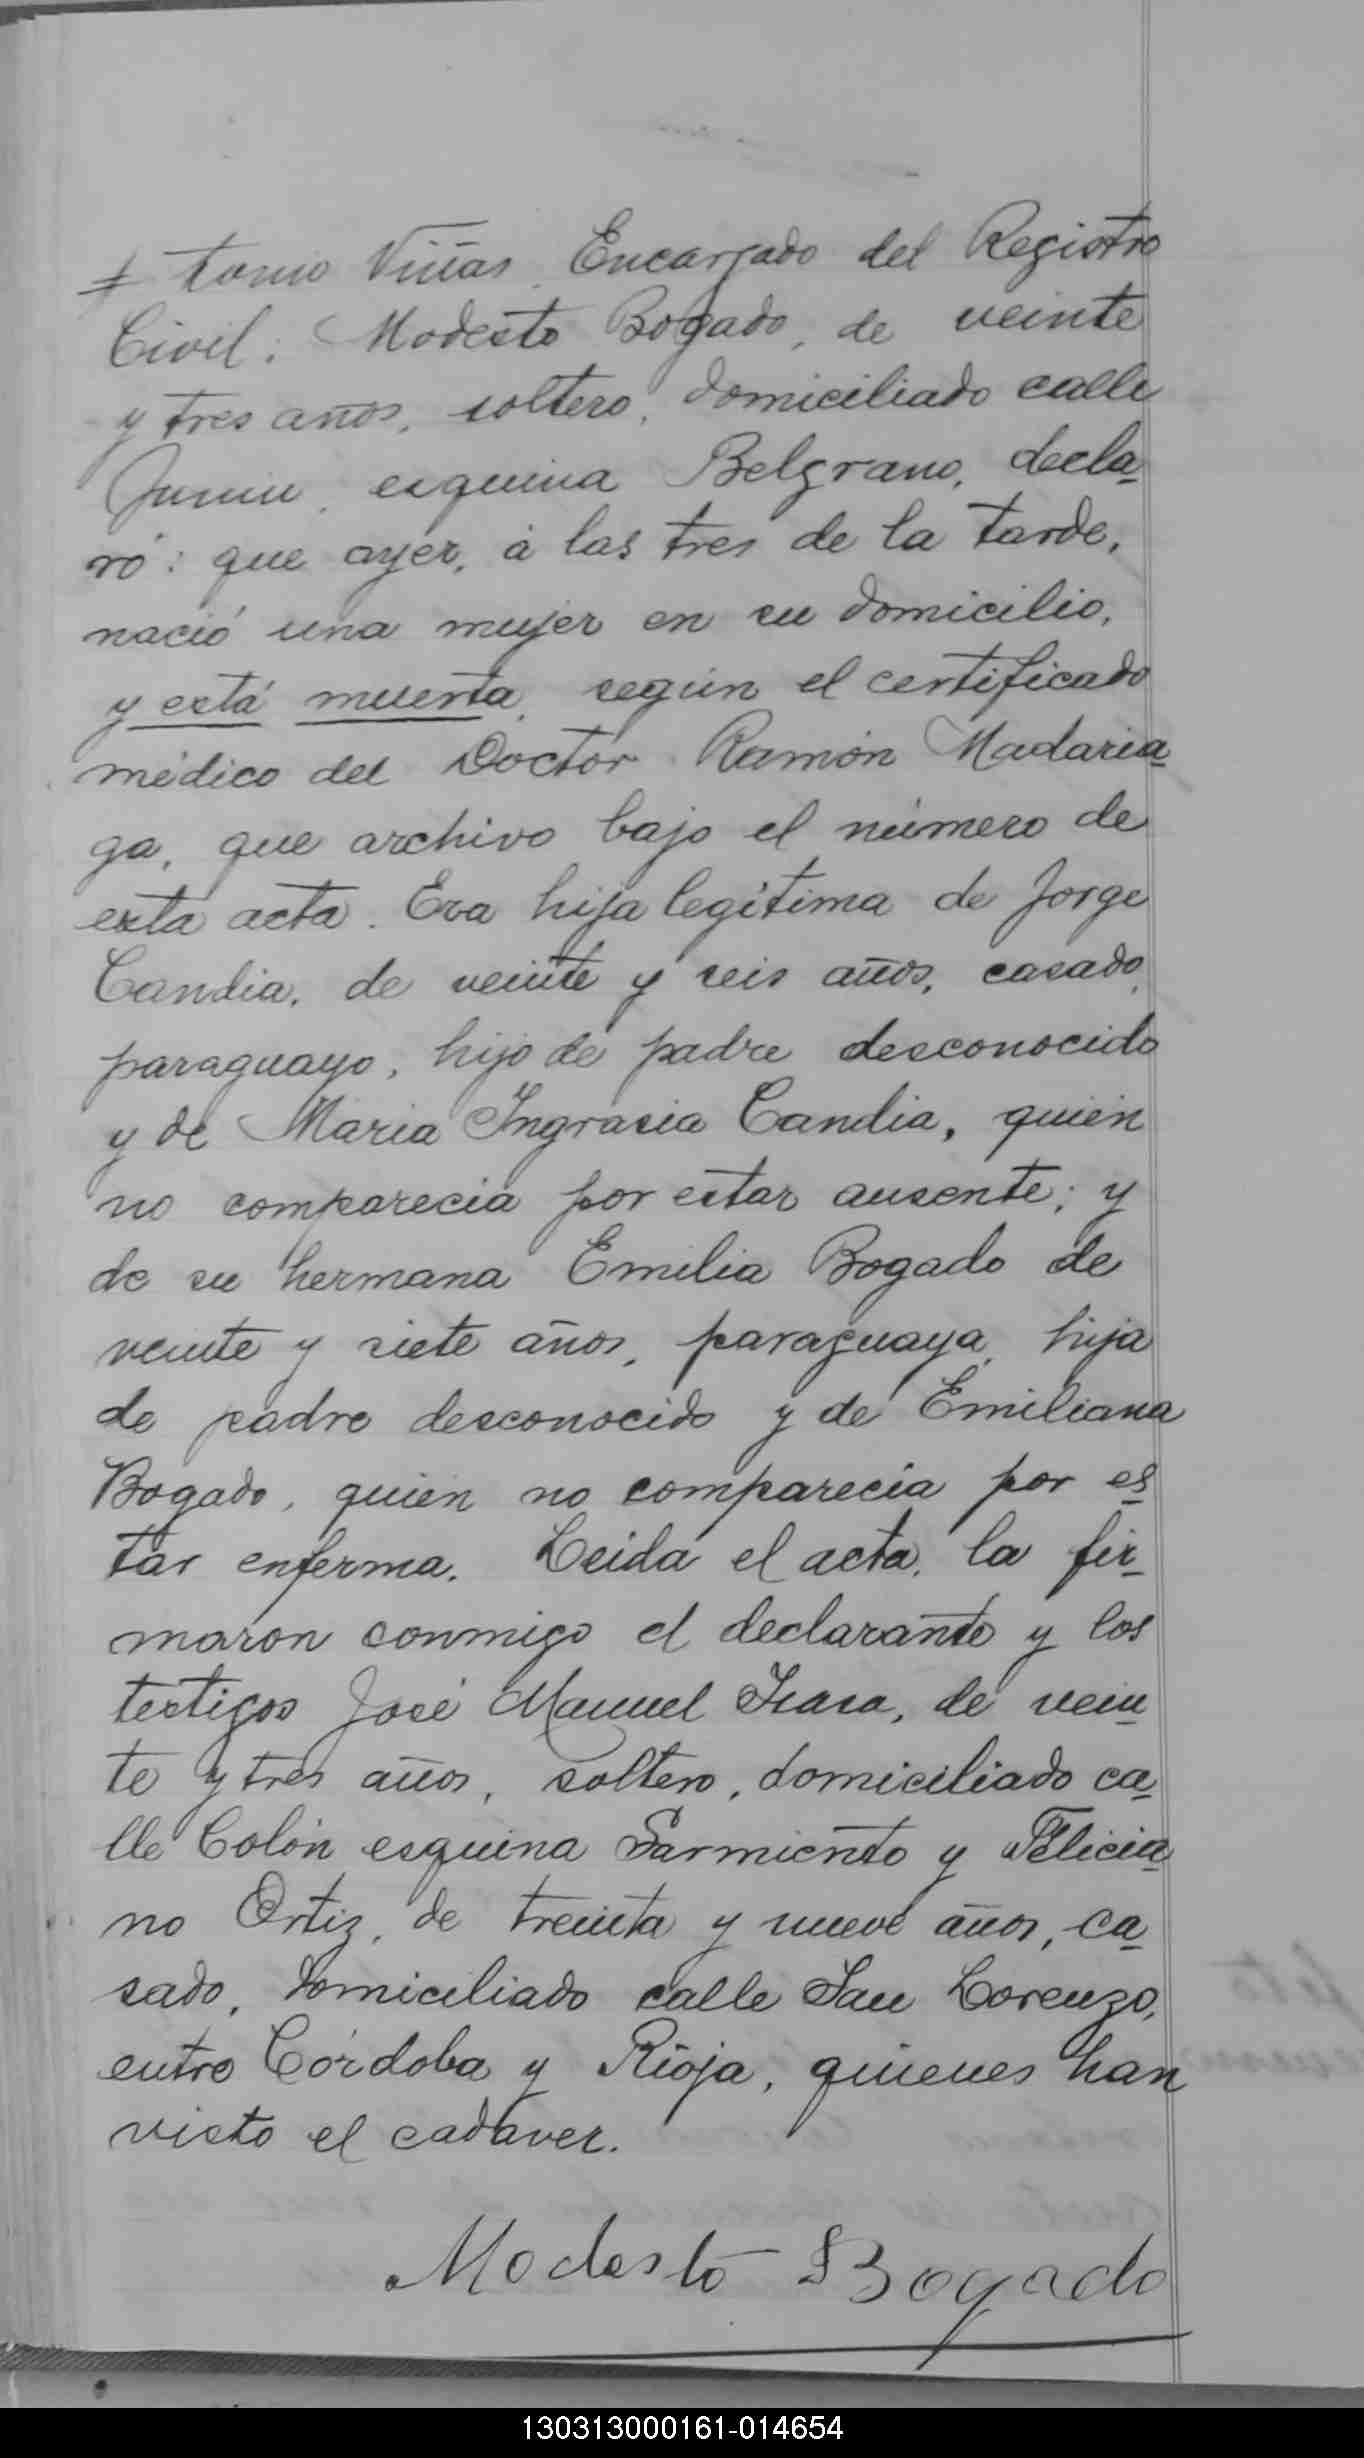 tonio Viñas, Encargado del Registro
Civil: Modesto Bogado, de veinte
y tres años, soltero, domiciliado calle
Junin, esquina Belgrano, decla-
ró: que ayer, á las tres de la tarde,
nació una mujer en su domicilio,
y está muerta, según el certificado
médico del Doctor Ramón Madaria-
ga, que archivo bajo el número de
esta acta. Era hija legítima de Jorge
Candia, de veinte y seis años, casado,
paraguayo, hijo de padre desconocido
y de Maria Ingrasia Candia, quién
no comparecia por estar ausente; y
de su hermana Emilia Bogado de
veinte y siete años, paraguaya, hija
de padre desconocido y de Emiliana
Bogado, quién no comparecía por es-
tar enferma. Leida el acta, la fir-
maron conmigo el declarante y los
testigos José Manuel de vein-
te y tres años, soltero, domiciliado ca-
lle Colón esquina Sarmiento y Felicia-
no Ortiz, de treinta y nueve años, ca-
sado, domiciliado calle San Lorenzo,
entre Córdoba y Rioja, quienes han
visto el cadaver.
Modesto Bogado
130313000161-014654